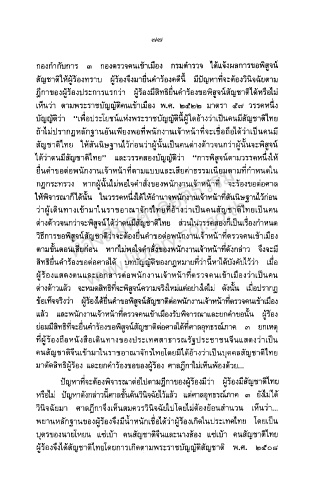 ๗๗
กองกำกับการ ๓ กองตรวจคนเข้าเมือง กรมตำรวจ ได้แจ้งผลการขอพิสูจน์
สัญชาติให้ผู้ร้องทราบ ผู้ร้องจึงมายื่นคำร้องคดีนี้ มีปัญหาที่จะต้องวินิจฉัยตาม
ฎีกาของผู้ร้องประการแรกว่า ผู้ร้องมีสิทธิยื่นคำร้องขอพิสูจน์สัญชาติได้หรือไม่
เห็นว่า ตามพระราชบัญญัติคนเข้าเมือง พ.ศ. ๒๕๒๒ มาตรา ๕๗ วรรคหนึ่ง
บัญญัติว่า "เพื่อประโยชน์แห่งพระราชบัญญัตินี้ผู้ใดอ้างว่าเป็นคนมีสัญชาติไทย
ถ้าไม่ปรากฏหลักฐานอันเพียงพอที่พนักงานเจ้าหน้าที่จะเชื่อถือได้ว่าเป็นคนมี
สัญชาติไทย ให้สันนิษฐานไว้ก่อนว่าผู้นั้นเป็นคนต่างด้าวจนกว่าผู้นั้นจะพิสูจน์
ได้ว่าตนมีสัญชาติไทย" และวรรคสองบัญญัติว่า "การพิสูจน์ตามวรรคหนึ่งให้
ยื่นคำขอต่อพนักงานเจ้าหน้าที่ตามแบบและเสียค่าธรรมเนียมตามที่กำหนดใน
กฎกระทรวง หากผู้นั้นไม่พอใจคำสั่งของพนักงานเจ้าหน้าที่ จะร้องขอต่อศาล
ให้พิจารณาก็ได้นั้น ในวรรคหนึ่งได้ให้อำนาจพนักงานเจ้าหน้าที่สันนิษฐานไว้ก่อน
ว่าผู้เดินทางเข้ามาในราชอาณาจักรไทยที่อ้างว่าเป็นคนสัญชาติไทยเป็นคน
ต่างด้าวจนกว่าจะพิสูจน์ได้ว่าตนมีสัญชาติไทย ส่วนในวรรคสองก็เป็นเรื่องกำหนด
วิธีการขอพิสูจน์สัญชาติว่าจะต้องยื่นคำขอต่อพนักงานเจ้าหน้าที่ตรวจคนเข้าเมือง
ตามขั้นตอนเสียก่อน หากไม่พอใจคำสั่งของพนักงานเจ้าหน้าที่ดังกล่าว จึงจะมี
สิทธิยื่นคำร้องขอต่อศาลได้ บทบัญญัติของกฎหมายที่ว่านี้หาได้บังคับไว้ว่า เมื่อ
ผู้ร้องแสดงตนและเอกสารต่อพนักงานเจ้าหน้าที่ตรวจคนเข้าเมืองว่าเป็นคน
ต่างด้าวแล้ว จะหมดสิทธิที่จะพิสูจน์ความจริงใหม่แต่อย่างใดไม่ ดังนั้น เมื่อปรากฏ
ข้อเท็จจริงว่า ผู้ร้องได้ยื่นคำขอพิสูจน์สัญชาติต่อพนักงานเจ้าหน้าที่ตรวจคนเข้าเมือง
แล้ว และพนักงานเจ้าหน้าที่ตรวจคนเข้าเมืองรับพิจารณาและยกคำขอนั้น ผู้ร้อง
ย่อมมีสิทธิที่จะยื่นคำร้องขอพิสูจน์สัญชาติต่อศาลได้ที่ศาลอุทธรณ์ภาค ๓ ยกเหตุ
ที่ผู้ร้องถือหนังสือเดินทางของประเทศสาธารณรัฐประชาชนจีนแสดงว่าเป็น
คนสัญชาติจีนเข้ามาในราชอาณาจักรไทยโดยมิได้อ้างว่าเป็นบุคคลสัญชาติไทย
มาตัดสิทธิผู้ร้อง และยกคำร้องขอของผู้ร้อง ศาลฎีกาไม่เห็นพ้องด้วย...
ปัญหาที่จะต้องพิจารณาต่อไปตามฎีกาของผู้ร้องมีว่า ผู้ร้องมีสัญชาติไทย
หรือไม่ ปัญหาดังกล่าวนี้ศาลชั้นต้นวินิจฉัยไว้แล้ว แต่ศาลอุทธรณ์ภาค ๓ ยังไม่ได้
วินิจฉัยมา ศาลฎีกาจึงเห็นสมควรวินิจฉัยไปโดยไม่ต้องย้อนสำนวน เห็นว่า...
พยานหลักฐานของผู้ร้องจึงมีน้ำหนักเชื่อได้ว่าผู้ร้องเกิดในประเทศไทย โดยเป็น
บุตรของนายไหยน แซ่เบ้า คนสัญชาติจีนและนางฮ้อง แซ่เบ้า คนสัญชาติไทย
ผู้ร้องจึงได้สัญชาติไทยโดยการเกิดตามพระราชบัญญัติสัญชาติ พ.ศ. ๒๕๐๘